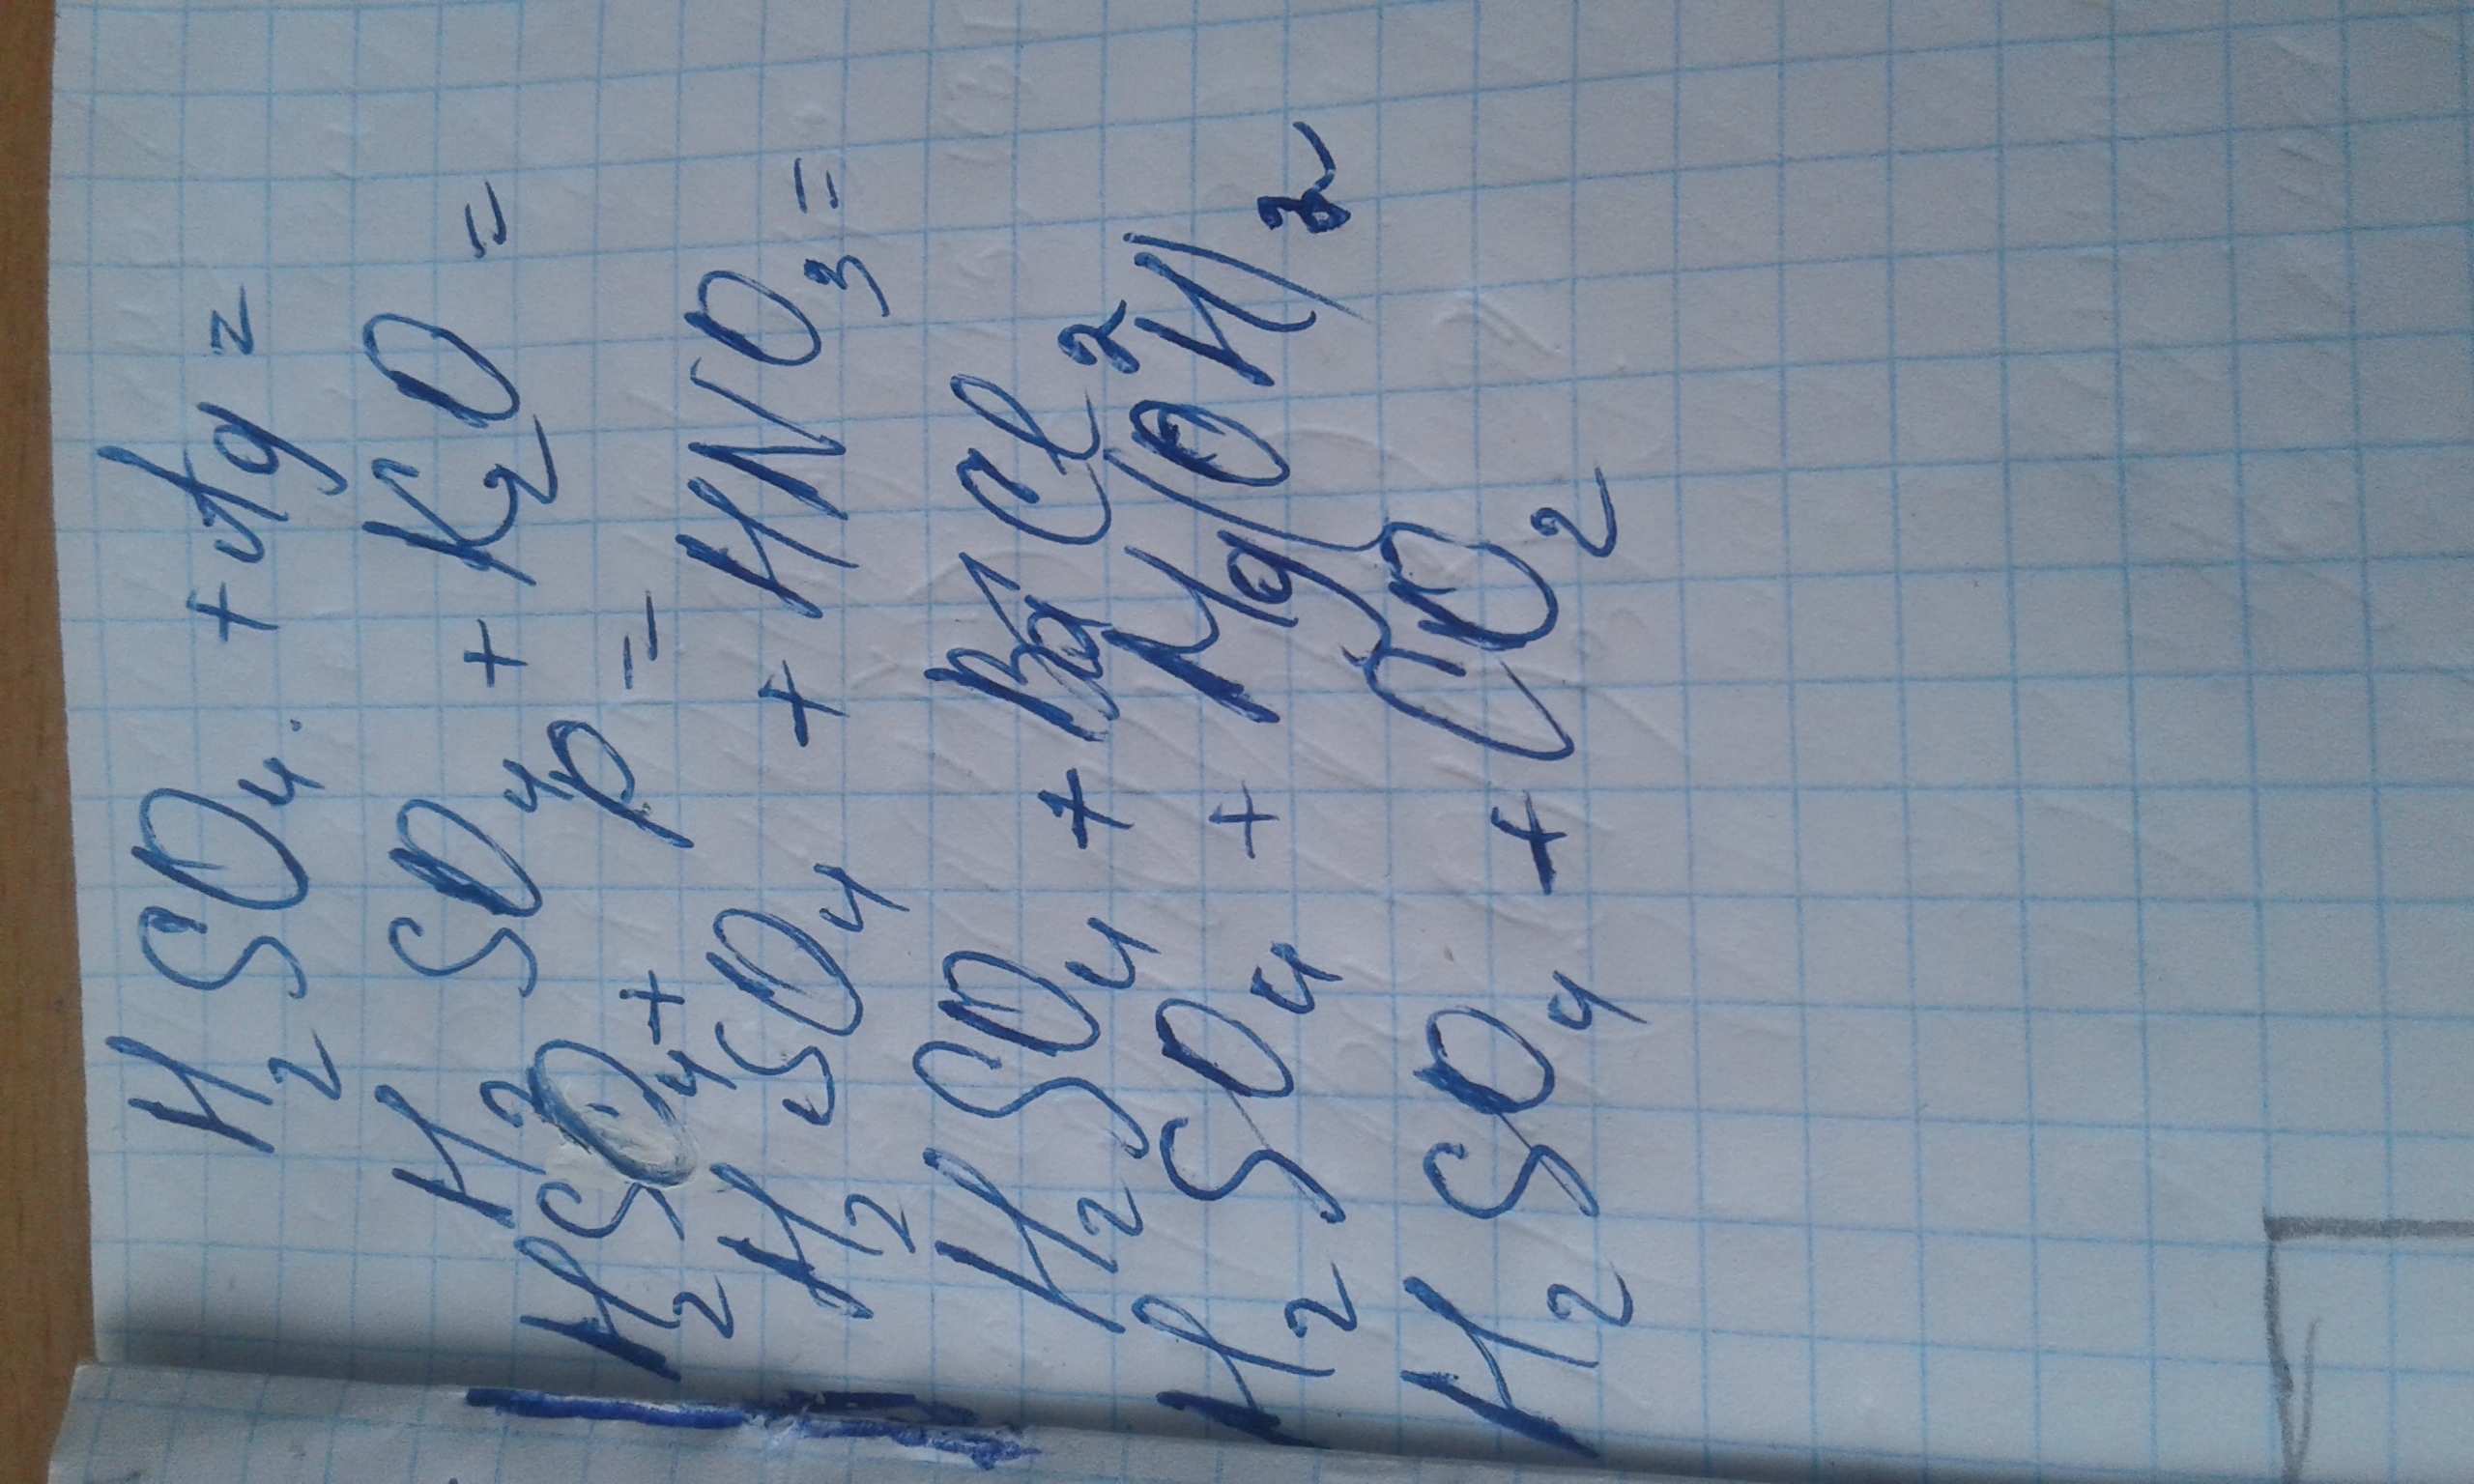 H₂SO₄ + Ag =
H₂SO₄ + K₂O =
H₂SO₄ + P =
H₂SO₄ + HNO₃ =
H₂SO₄ + BaCl₂
H₂SO₄ + Mg(OH)₂
H₂SO₄ + CO₂